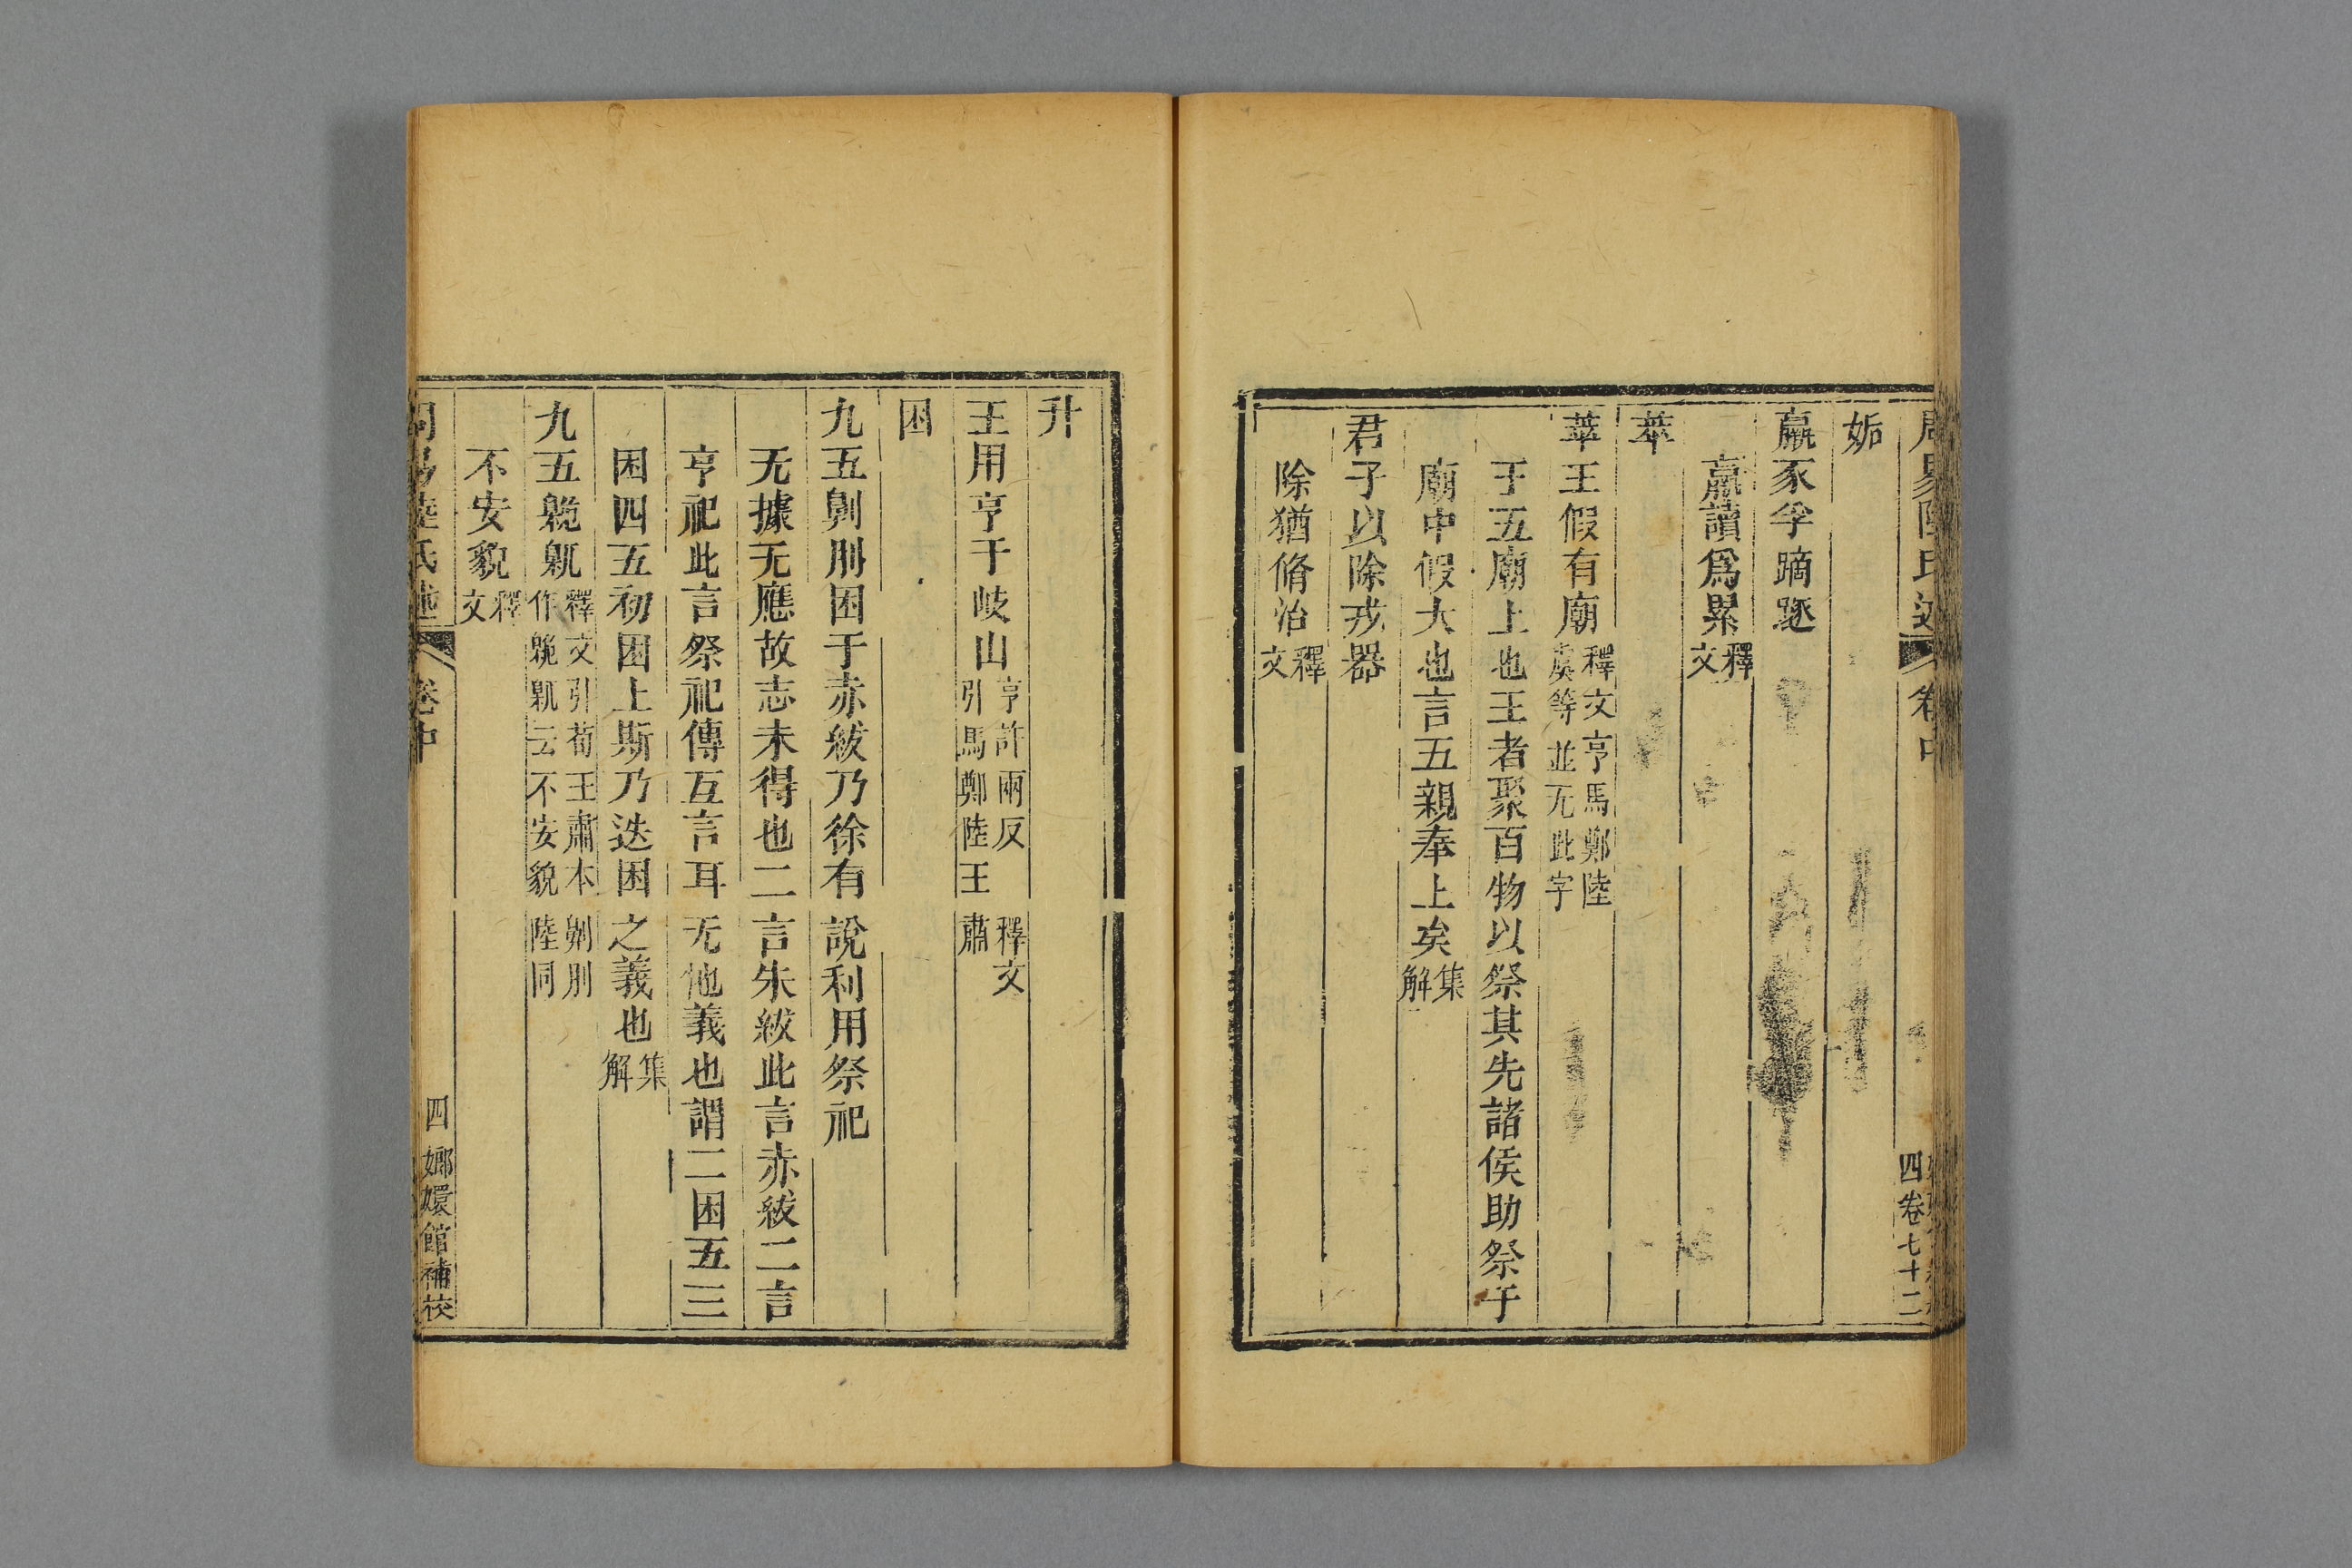 姤
羸豕孚蹢𨅊
羸讀爲累釋文
萃
萃王假有廟釋文亨馬鄭陸虞等並无此字
于五廟上也王者聚百物以祭其先諸侯助祭于
廟中假大也言五親奉上矣集解
君子以除戎器
除猶脩治釋文
四卷七十二
升
王用亨于岐山亨許兩反釋文引馬鄭陸王肅
困
九五劓刖困于赤紱乃徐有說利用祭祀
无據无應故志未得也二言朱紱此言赤紱二言
亨祀此言祭祀傳互言耳无他義也謂二困五三
困四五初困上斯乃迭困之義也集解
九五臲䲰釋文引荀王肅本劓刖作臲䲰云不安貌陸同
不安貌釋文
周易陸氏述 卷中 四 嫏嬛館補校